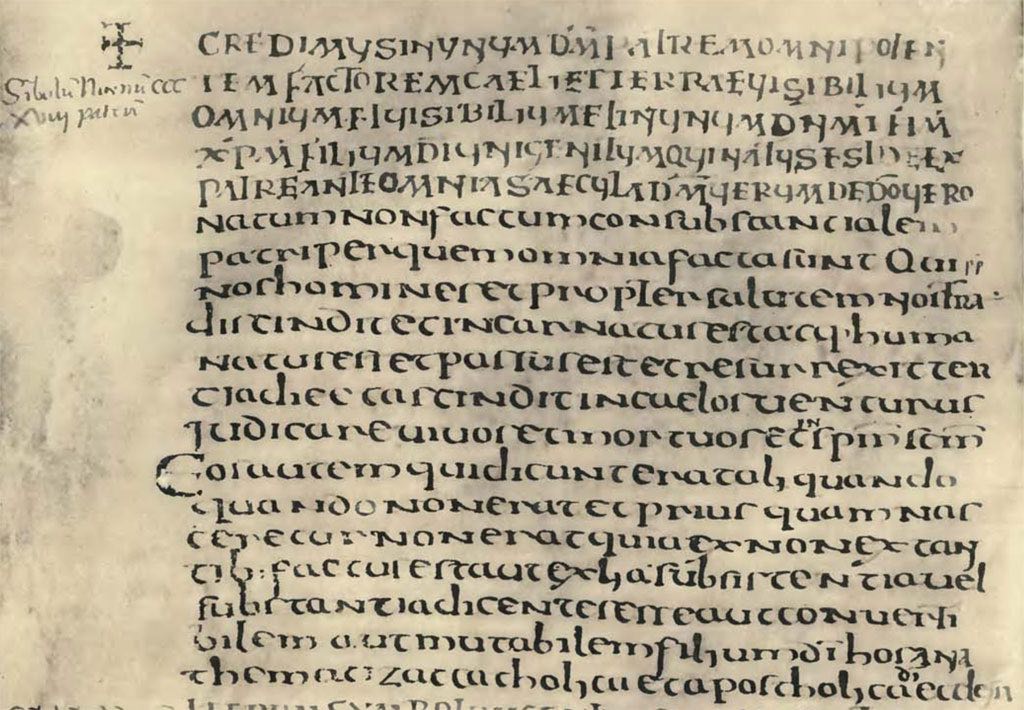 CREDIMUS IN UNUM DM PATREM OMNIPOTEN
TEM FACTOREM CAELI ET TERRAE UISIBILIUM
OMNIUM ET IUISIBILIUM ET IN UNUM DNM IHM
XPM FILIUM DI UNIGENITUM QUI NATUS EST DE EX
PATRE ANTE OMNIA SAECULA DM UERUM DE DO UERO
natum non factum consubstancialem
patri per quem omnia facta sunt Qui pp
nos homines et propter salutem nostra
discindit et incarnatus est acq· huma
natus est et passus est et resurrexit ter
tia die et ascindit in caelos uenturus
judicare uiuos et mortuos et in spm scm
Eos autem qui dicunt erat aliquando
quando non erat et prius quam nas
ceretur non erat quia ex non extan
tib: factus est aut ex ha subsistentia uel
substantia dicentes esse aut conuerti
bilem aut mutabilem filium di hos ana
themaizat catholica et apostholica do ecclen